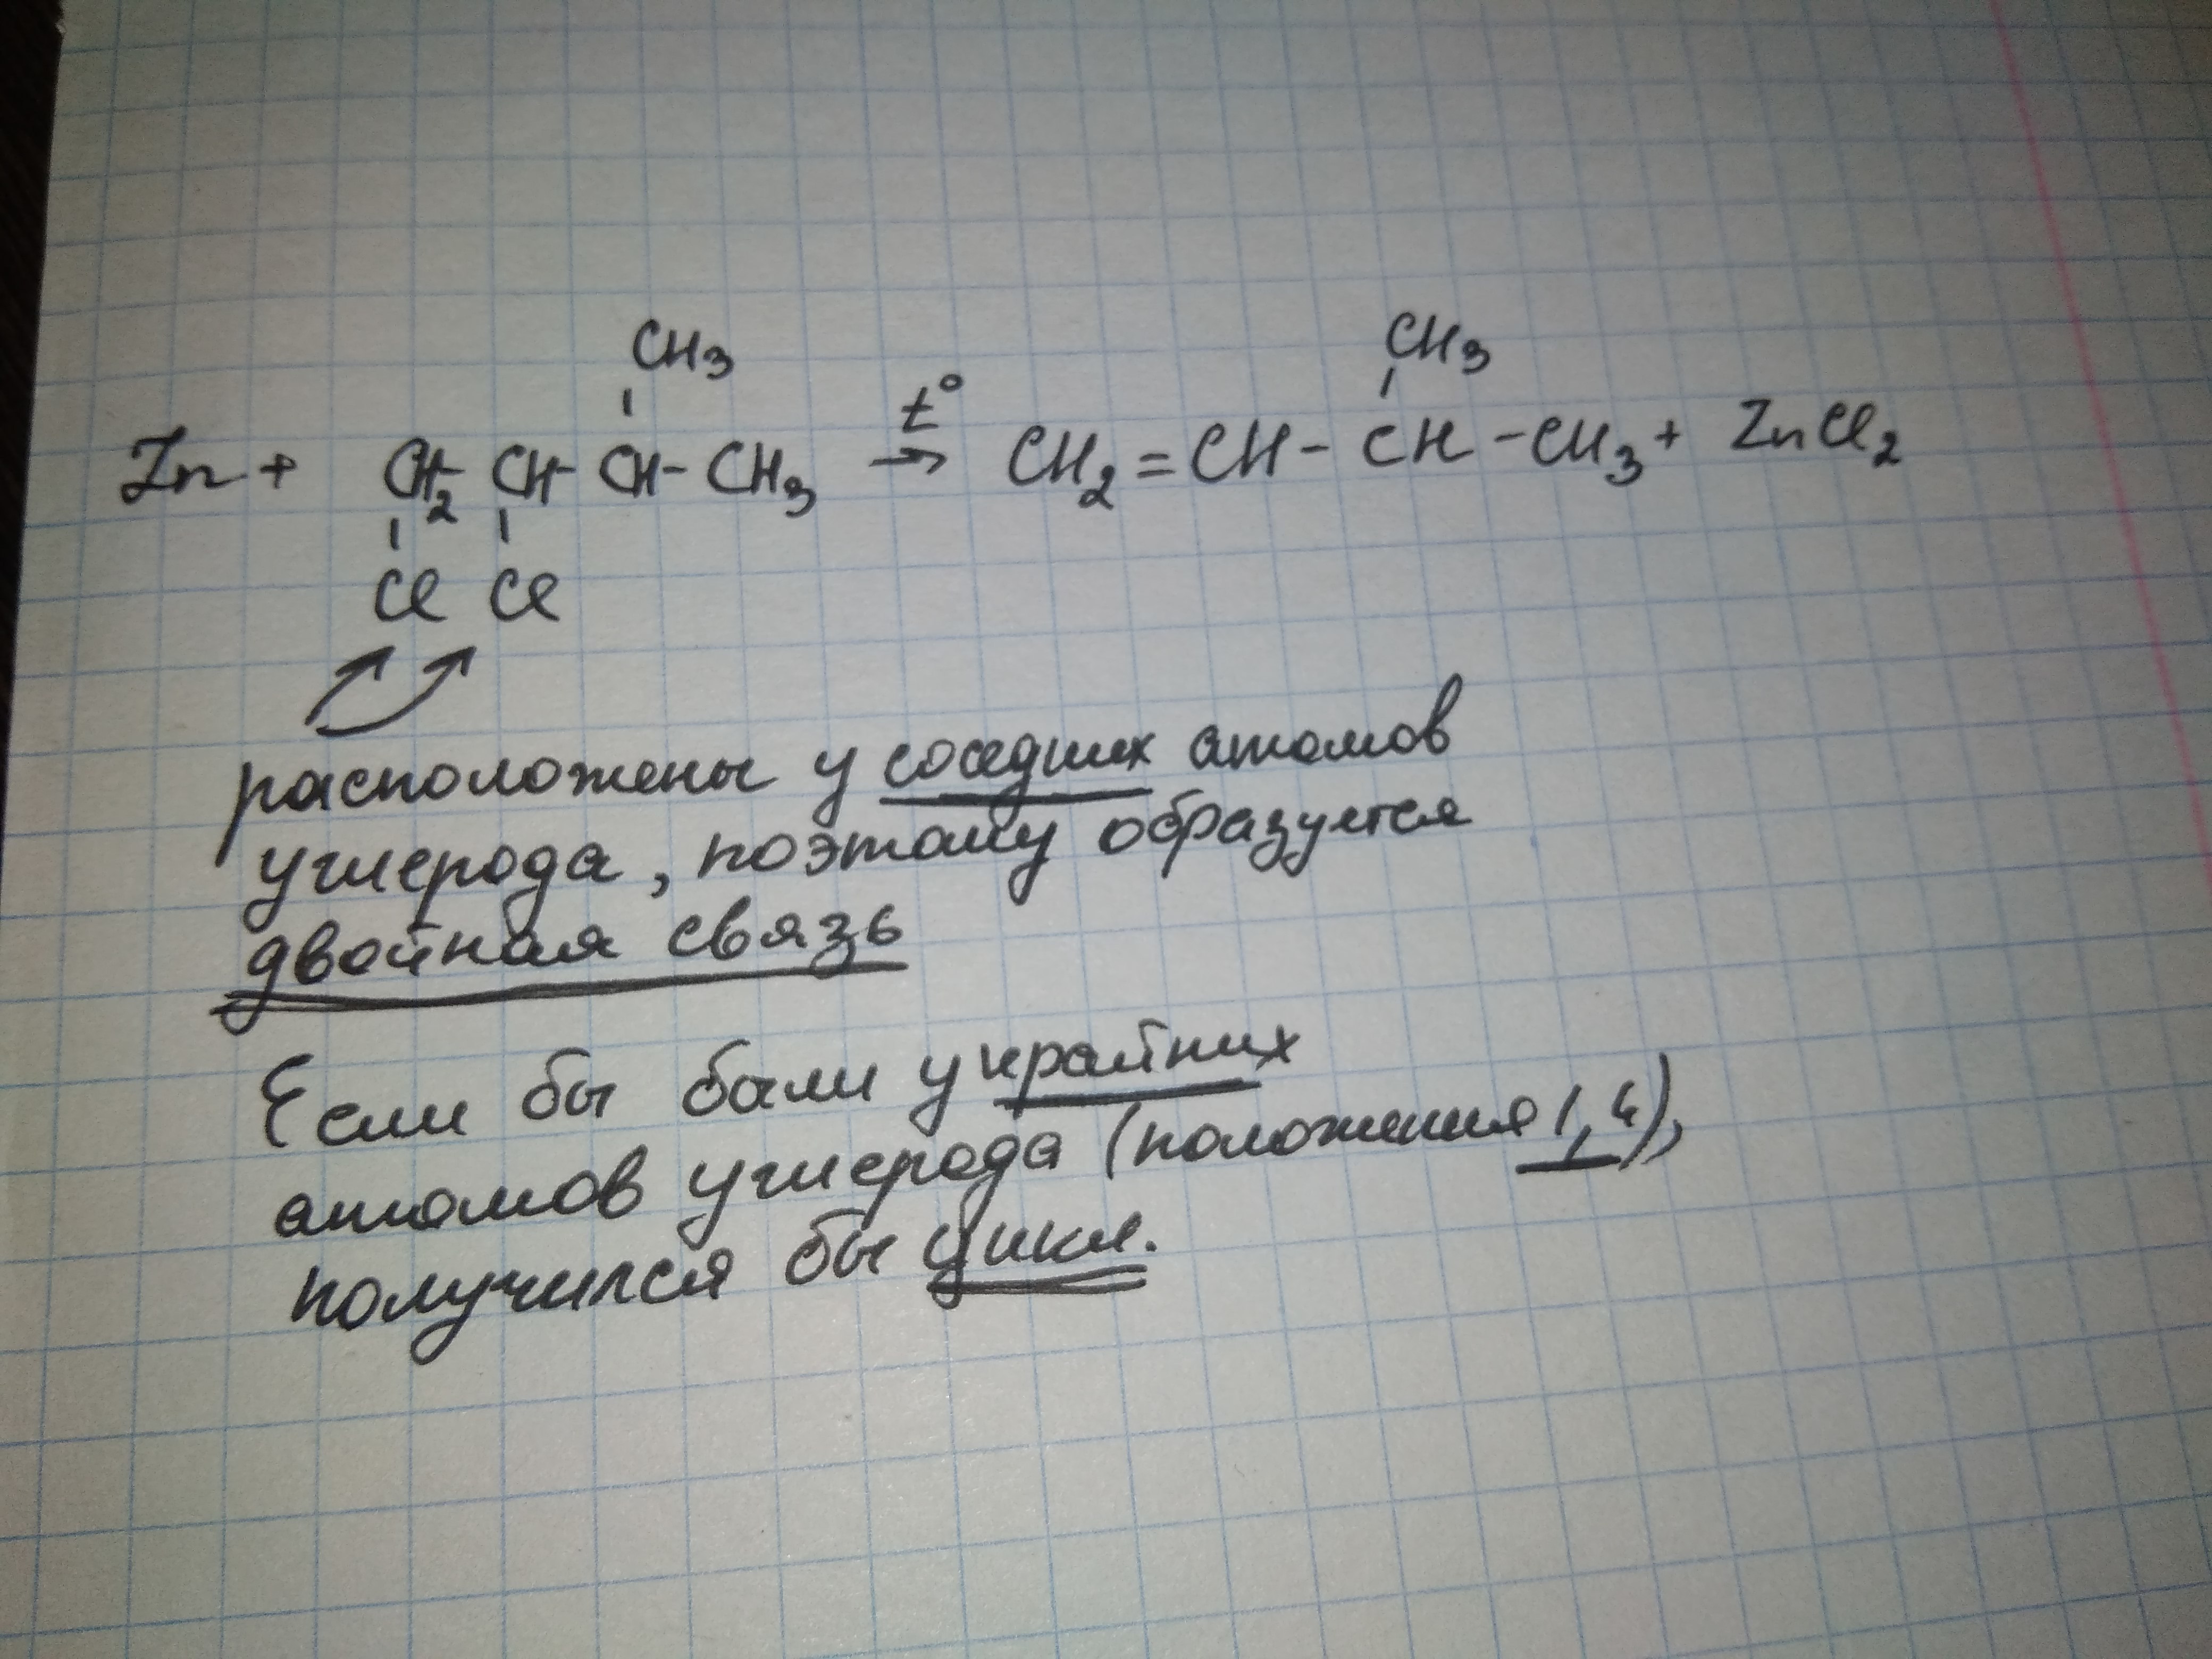 CH₃ CH₃
Zn + CH₂- CH- CH- CH₃ t° → CH₂ = CH - CH - CH₃ + ZnCl₂
Cl Cl
расположены у соседних атомов
углерода, поэтому образуется
двойная связь
Если бы были у крайних
атомов углерода (положения 1,4),
получился бы цикл.